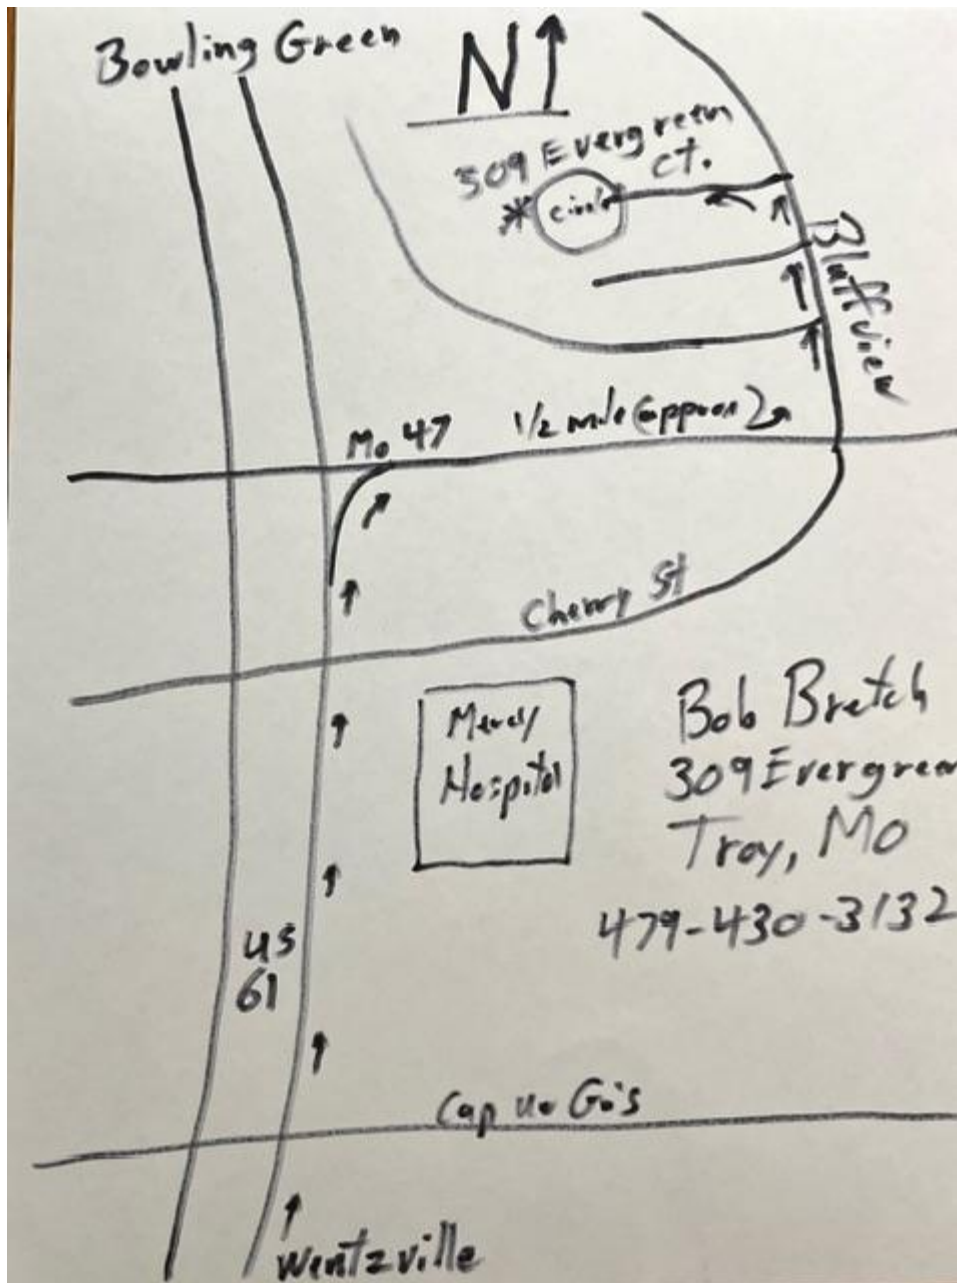 Bowling Green
N
309 Evergreen
ct.
circle
Bluffview
1/2 mile (approx)
Mo 47
Cherry St
Mercy
Hospital
Bob Bretch
309 Evergreen
Troy, MO
479-430-3132
US
61
Cap
Wentzville